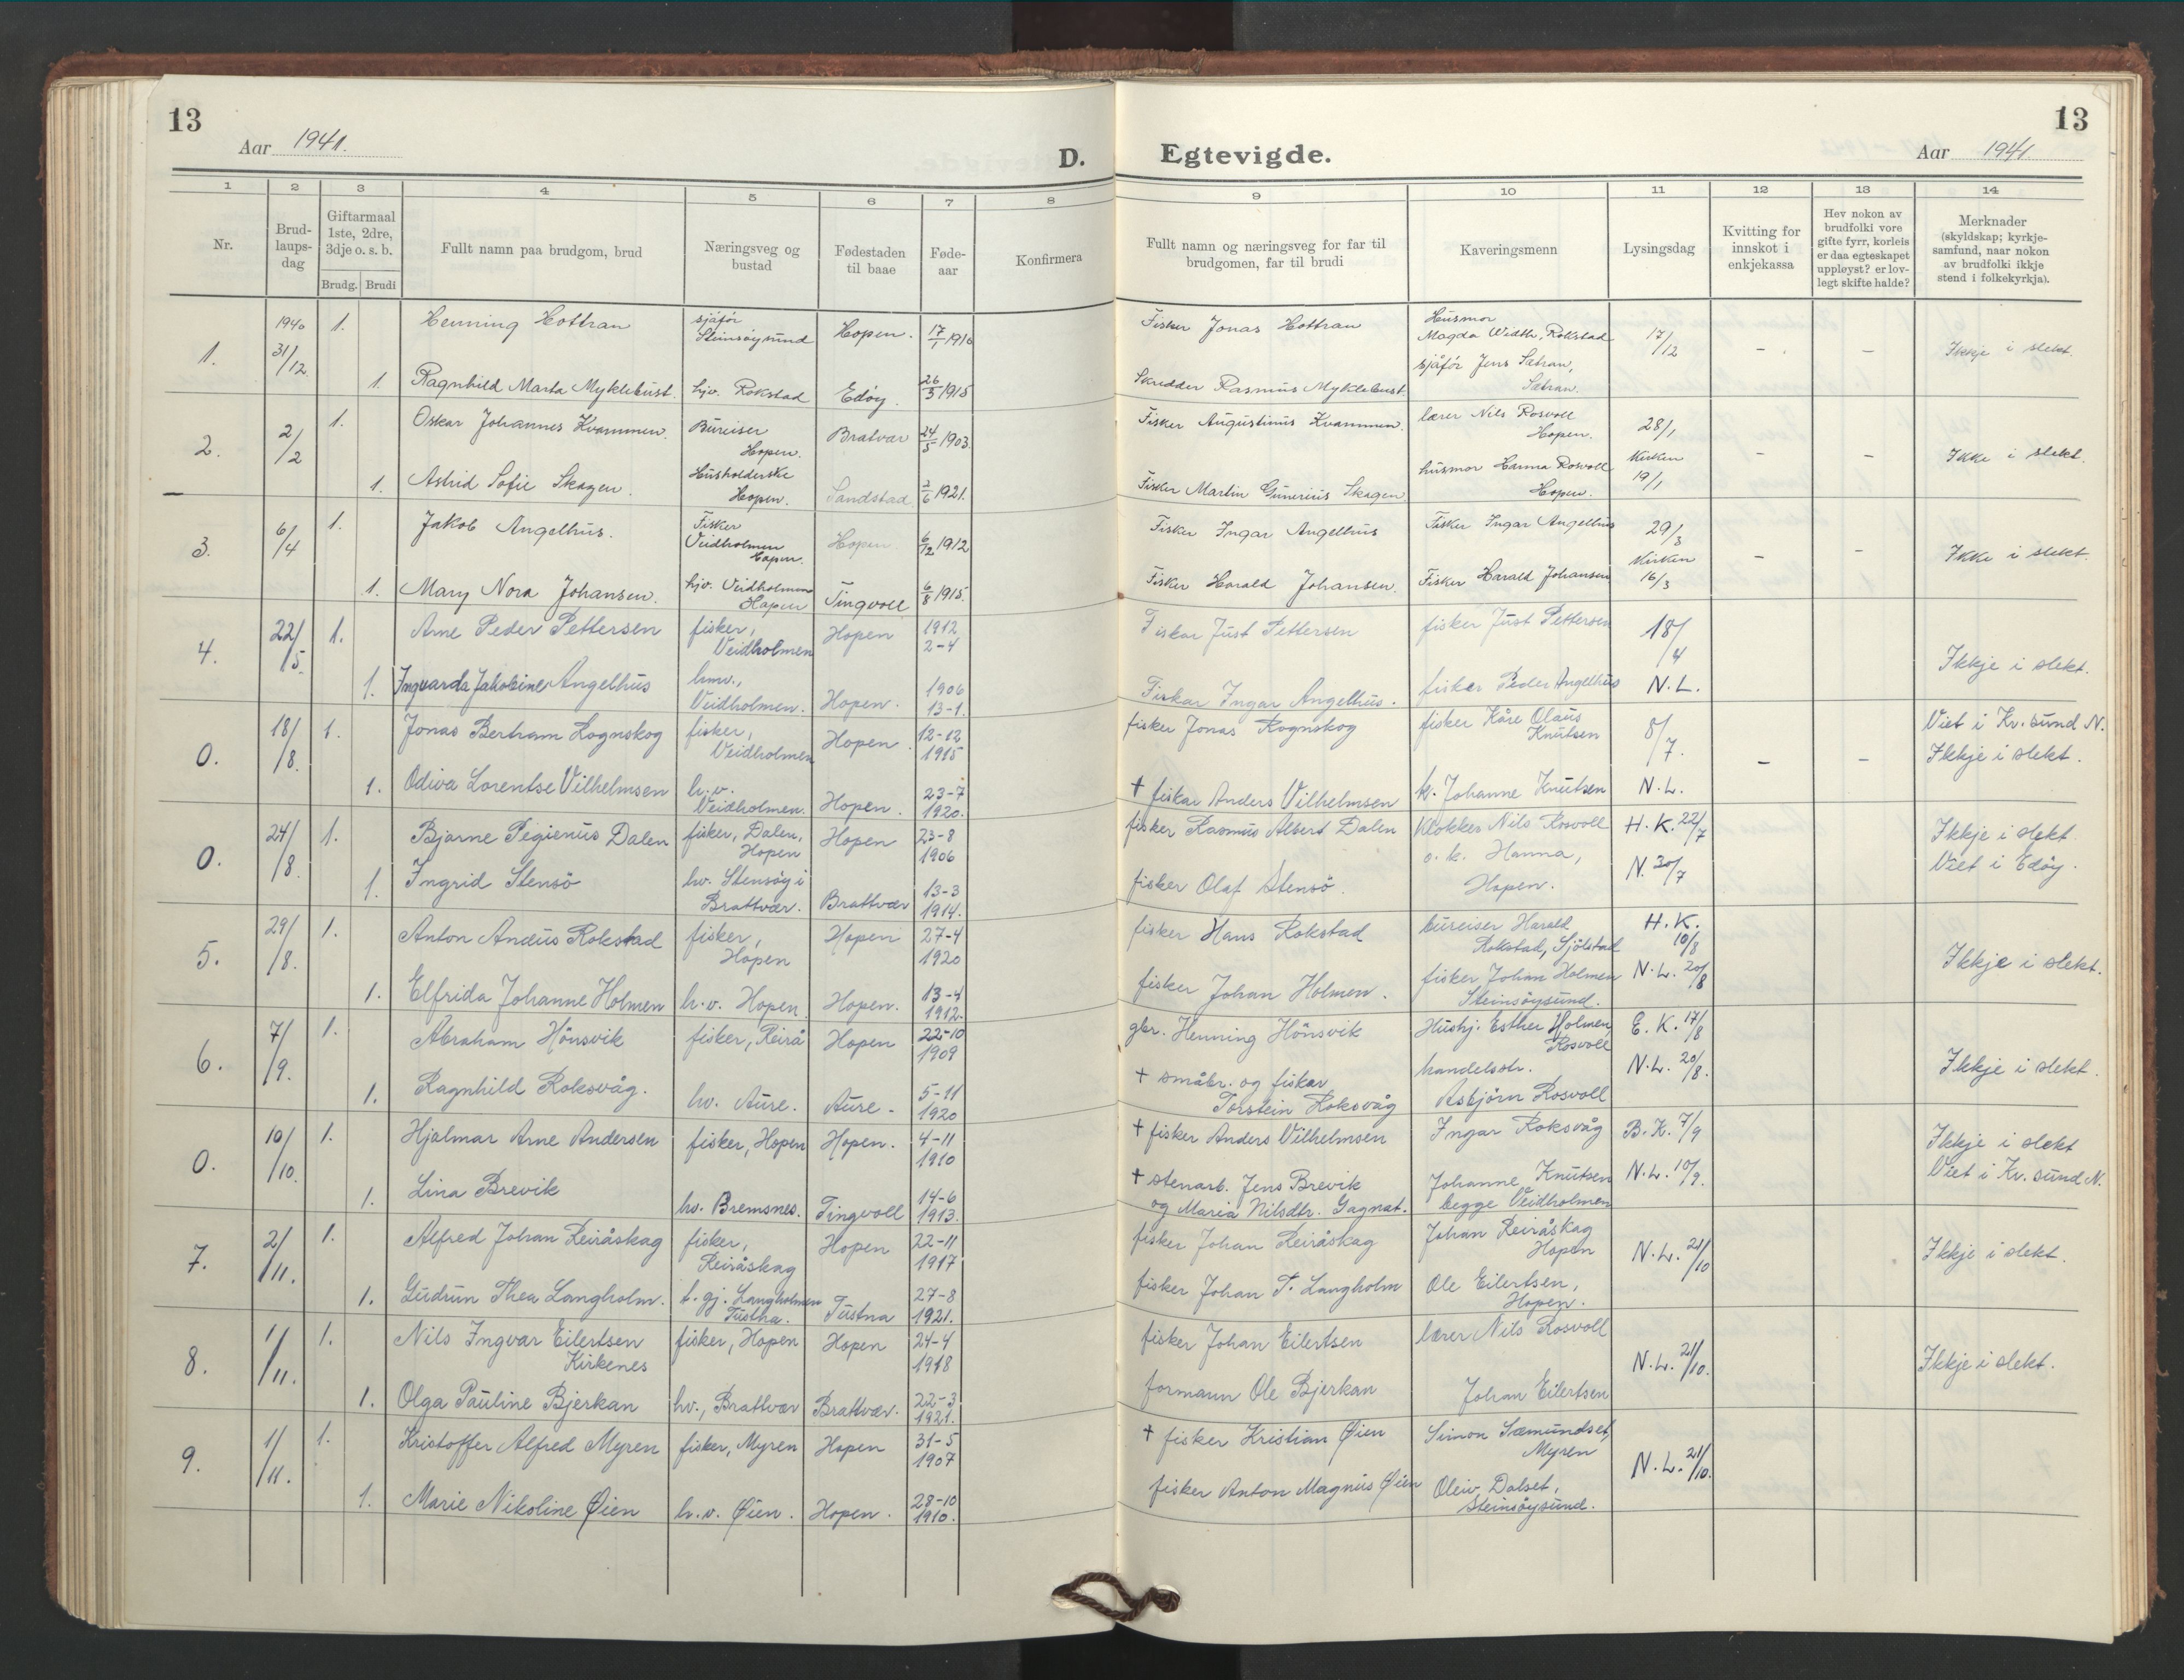 13
Aar 1941.
D.
Egtevigde.
Aar 1941
13
1 2 3 4 5 6 7 8 9 10 11 12 13 14
Nr.
Brud-
laups-
dag
Giftarmaal
1ste, 2dre,
3dje o. s. b.
Brudg. Brudi
Fullt namn paa brudgom, brud
Næringsveg og
bustad
Fødestaden
til baae
Føde-
aar
Konfirmera
Fullt namn og næringsveg for far til
brudgomen, far til brudi
Kaveringsmenn
Lysingsdag
Kvitting for
innskot i
enkjekassa
Hev nokon av
brudfolki vore
gifte fyrr, korleis
er daa egteskapet
uppløyst? er lov-
legt skifte halde?
Merknader
(skyldskap; kyrkje-
samfund, naar nokon
av brudfolki ikkje
stend i folkekyrkja).
1. 1940 31/12 1. Henning Hottran sjåfør Steinsöysund Hopen. 17/1 1910 Fisker Jonas Hottran Husmor Magda Width, Rokstad 17/12 - - Ikkje i slekt.
1. Ragnhild Marta Myklebust. hjv. Rokstad Edöy. 26/3 1915 Skredder Rasmus Myklebust. sjåför Jens Sætran, Sætran.
2. 2/2 1. Oskar Johannes Kvammen. Bureiser Hopen. Bratvær 24/5 1903. Fisker Augustinus Kvammen. lærer Nils Rosvoll Hopen. 28/1 - - Ikke i slekt.
1. Astrid Sofie Skagen. Husholderske Hopen. Sandstad 2/6 1921. Fisker Martin Gunerius Skagen. husmor Hanna Rosvoll Hopen. Kirken 19/1
3. 6/4 1. Jakob Angelhus. Fisker Veidholmen Hopen. Hopen. 6/12 1912 Fisker Ingar Angelhus Fisker Ingar Angelhus 29/3 - - Ikke i slekt
1. Mary Nora Johansen. hjv. Veidholmen Hopen Tingvoll 6/8 1915. Fisker Harald Johansen. Fisker Harald Johansen Kirken 16/3
4. 22/5. 1. Arne Peder Pettersen fisker, Veidholmen Hopen 1912 2-4 Fiskar Just Pettersen fisker Just Pettersen 18/4 Ikkje i slekt.
1. Ingvarda Jakobine Angelhus hmv., Veidholmen. Hopen. 1906 13-1. Fiskar Ingar Angelhus. fisker Peder Angelhus N.L.
0. 18/8. 1. Jonas Bertram Rognskog fisker, Veidholmen Hopen. 12-12 1915 fisker Jonas Rognskog fisker Kåre Olaus Knutsen 8/7. - - Viet i Kr.sund N. Ikkje i slekt.
1. Odiva Lorentse Vilhelmsen h.v. Veidholmen. Hopen. 23-7 1920. † fiskar Anders Vilhelmsen k. Johanne Knutsen N.L.
0. 24/8. 1. Bjarne Pegienus Dalen fisker, Dalen, Hopen Hopen 23-8 1906 fisker Rasmus Albert Dalen Klokker Nils Rosvoll H.K. 22/7 Ikkje i slekt.
1. Ingrid Stensö hv. Stensöy i Brattvær. Brattvær 13-3 1914. fisker Olaf Stensö. o.k. Hanna, Hopen. N. 30/7 Viet i Edöy.
5. 29/8. 1. Anton Andus Rokstad fisker, Hopen Hopen 27-4 1920 fisker Hans Rokstad bureiser Harald Rokstad, Sjölstad H.K. 10/8 Ikkje i slekt.
1. Elfrida Johanne Holmen h.v. Hopen Hopen. 13-4 1912. fisker Johan Holmen. fisker Johan Holmen Steinsöysund. N.L. 20/8
6. 7/9. 1. Abraham Hönsvik fisker, Reirå Hopen 22-10 1909 gbr. Henning Hönsvik Hushj. Esther Holmen, Rosvoll E.K. 17/8 Ikkje i slekt.
1. Ragnhild Roksvåg. hv. Aure. Aure. 5-11 1920 † småbr. og fiskar Torstein Roksvåg handelsstr. Asbjörn Rosvoll N.L. 20/8.
0. 10/10. 1. Hjalmar Arne Andersen fisker, Hopen Hopen. 4-11 1910 † fisker Anders Vilhelmsen Ingar Roksvåg B.K. 7/9 Ikkje i slekt
1. Lina Brevik hv. Bremsnes. Tingvoll 14-6 1913. † stenarb. Jens Brevik og Maria Nilsdtr. Gagnat. Johanne Knutsen begge Veidholmen N.L. 10/9. Viet i Kr.sund N.
7. 2/11. 1. Alfred Johan Reiråskag fisker, Reiråskag Hopen 22-11 1917 fisker Johan Reiråskag Johan Reiråskag Hopen N.L. 21/10 Ikkje i slekt.
1. Gudrun Thea Langholm. t.gj. Langholmen Tustna. Tustna 27-8 1921. fisker Johan T. Langholm Ole Eilertsen, Hopen.
8. 1/11. 1. Nils Ingvar Eilertsen Kirkenes fisker, Hopen Hopen 24-4 1918 fisker Johan Eilertsen lærer Nils Rosvoll N.L. 21/10. Ikkje i slekt.
1. Olga Pauline Bjerkan hv., Brattvær Brattvær. 22-3 1921. formann Ole Bjerkan Johan Eilertsen
9. 1/11. 1. Kristoffer Alfred Myren fisker, Myren Hopen 31-5 1907 † fisker Kristian Øien Simon Sæmundset, Myren N.L. 21/10.
1. Marie Nikoline Øien h.v. Øien. Hopen. 28-10 1910. fisker Anton Magnus Øien Oleiv Dalset, Steinsöysund.